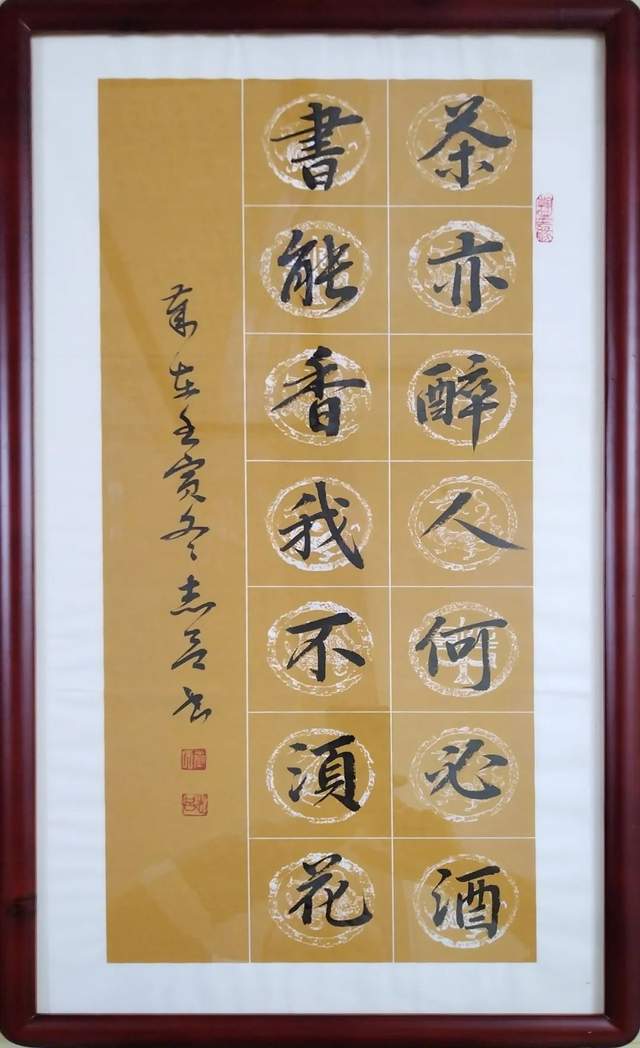 茶亦醉人何必酒
書能香我不須花
歲在壬寅冬志